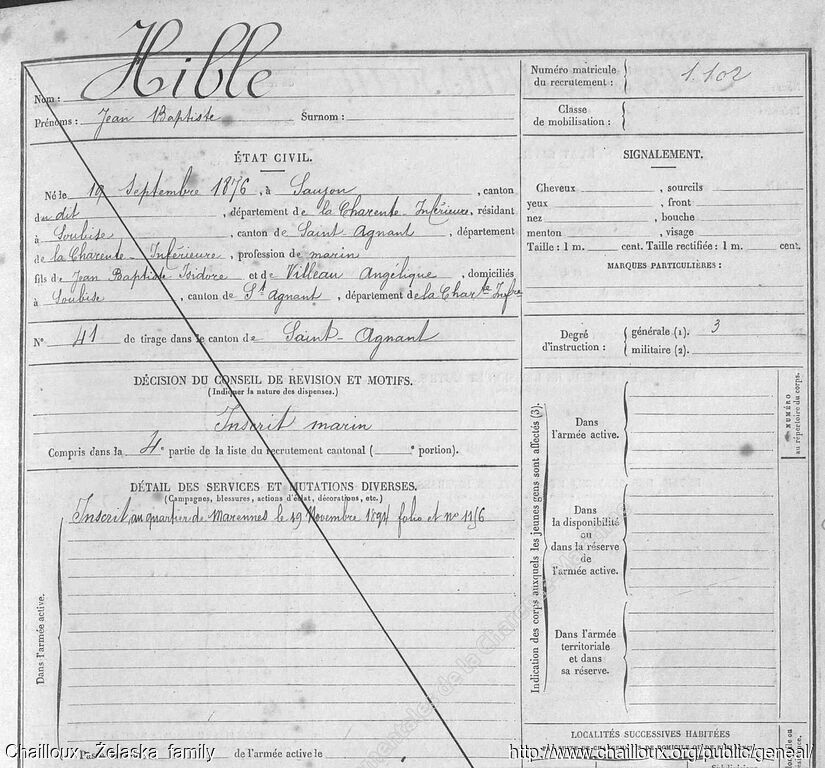 Hible
Nom :
Prénoms : Jean Baptiste Surnom :
Numéro matricule du recrutement : 1.102
Classe de mobilisation :
ÉTAT CIVIL.
Né le 19 Septembre 1876, à Saujon, canton
du dit, département de la Charente-Inférieure, résidant
à Soubise, canton de Saint-Agnant, département
de la Charente-Inférieure, profession de marin
fils de Jean Baptiste Isidore et de Villeau Angélique, domiciliés
à Soubise, canton de St Agnant, département de la Charte Infre
N° 41 de tirage dans le canton de Saint-Agnant
DÉCISION DU CONSEIL DE REVISION ET MOTIFS.
(Indiquer la nature des dispenses.)
Inscrit marin
Compris dans la 4e partie de la liste du recrutement cantonal ( e portion).
DÉTAIL DES SERVICES ET MUTATIONS DIVERSES.
(Campagnes, blessures, actions d'éclat, décorations, etc.)
Inscrit au quartier de Marennes le 19 Novembre 1894 folio et no 1156
Dans l'armée active.
Pas de l'armée active le
SIGNALEMENT.
Cheveux , sourcils
yeux , front
nez , bouche
menton , visage
Taille : 1 m. cent. Taille rectifiée : 1 m. cent.
MARQUES PARTICULIÈRES :
Degré d'instruction :
générale (1). 3
militaire (2).
Indication des corps auxquels les jeunes gens sont affectés (3).
Dans
l'armée active.
Dans
la disponibilité
ou
dans la réserve
de
l'armée active.
Dans l'armée
territoriale
et dans
sa réserve.
NUMÉRO
au répertoire du corps.
LOCALITÉS SUCCESSIVES HABITÉES
Chailloux - Żelaska family
http://www.chailloux.org/public/geneal/